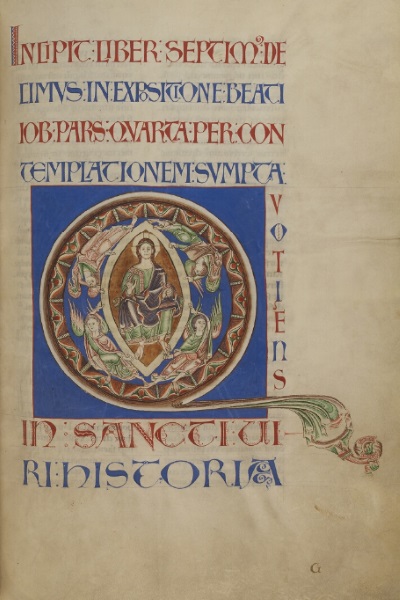 INCIPIT : LIBER : SEPTIM' : DE
CIMVS : IN : EXPOSITIONE : BEATI
IOB : PARS : QVARTA : PER : CON
TEMPLATIONEM : SVMPTA :
QVOTIENS
IN : SANCTI : UI-
RI : hISTORIA
G